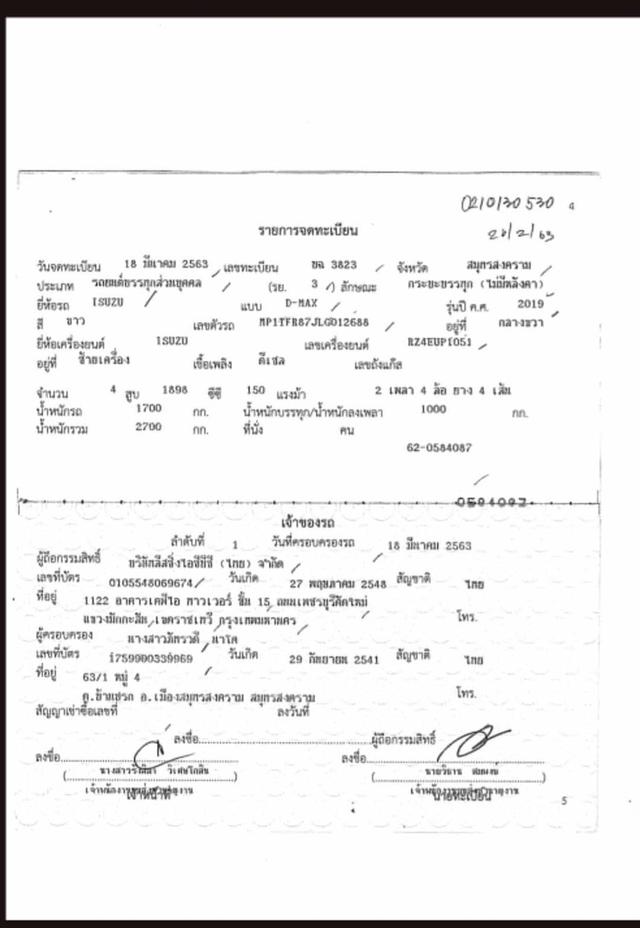 0210130530
26/2/63
รายการจดทะเบียน
วันจดทะเบียน 18 มีนาคม 2563 เลขทะเบียน ขฉ 3823 จังหวัด สมุทรสงคราม
ประเภท รถยนต์บรรทุกส่วนบุคคล (รย. 3 ) ลักษณะ กระบะบรรทุก (ไม่มีหลังคา)
ยี่ห้อรถ ISUZU แบบ D-MAX รุ่นปี ค.ศ. 2019
สี ขาว เลขตัวรถ MP1TFR87JLG012688 อยู่ที่ กลางขวา
ยี่ห้อเครื่องยนต์ ISUZU เลขเครื่องยนต์ RZ4EUP1051
อยู่ที่ ซ้ายเครื่อง เชื้อเพลิง ดีเซล เลขถังแก๊ส
จำนวน 4 สูบ 1898 ซีซี 150 แรงม้า 2 เพลา 4 ล้อ ยาง 4 เส้น
น้ำหนักรถ 1700 กก. น้ำหนักบรรทุก/น้ำหนักลงเพลา 1000 กก.
น้ำหนักรวม 2700 กก. ที่นั่ง คน
62-0584087
0584087
เจ้าของรถ
ลำดับที่ 1 วันที่ครอบครองรถ 18 มีนาคม 2563
ผู้ถือกรรมสิทธิ์ บริษัทลีสซิ่งไอซีบีซี (ไทย) จำกัด
เลขที่บัตร 0105548069674 วันเกิด 27 พฤษภาคม 2548 สัญชาติ ไทย
ที่อยู่ 1122 อาคารเคพีไอ ทาวเวอร์ ชั้น 15 ถนนเพชรบุรีตัดใหม่
แขวงมักกะสัน เขตราชเทวี กรุงเทพมหานคร โทร.
ผู้ครอบครอง นางสาวภัทรวดี นาโค
เลขที่บัตร 1759900339969 วันเกิด 29 กันยายน 2541 สัญชาติ ไทย
ที่อยู่ 63/1 หมู่ 4
ต.ยี่สาร อ.เมืองสมุทรสงคราม สมุทรสงคราม โทร.
สัญญาเช่าซื้อเลขที่ ลงวันที่
ลงชื่อ ผู้ถือกรรมสิทธิ์
ลงชื่อ ลงชื่อ
เจ้าหน้าที่ นายทะเบียน
5